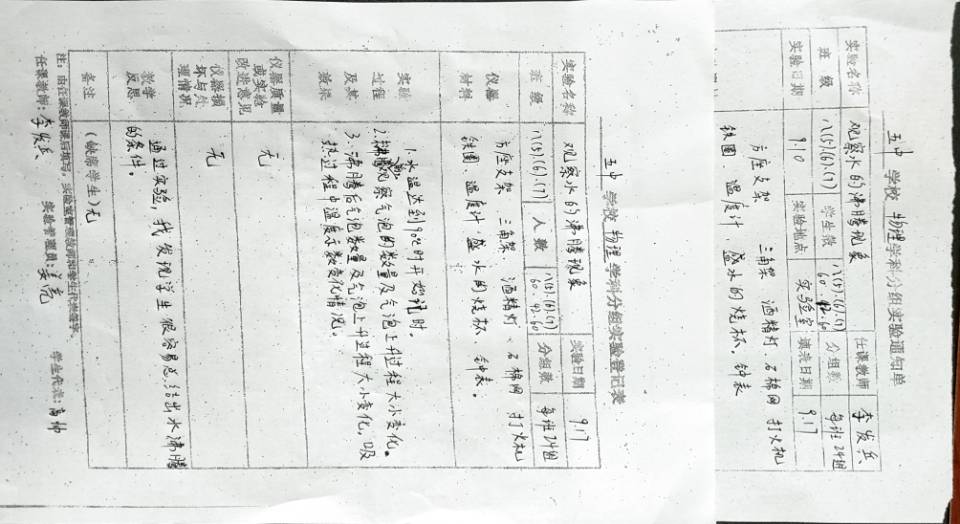 五中 学校 物理 学科分组实验通知单
实验名称 观察水的沸腾现象 任课教师 李发兵
班级 八(5).(6).(7) 学生数 八(5).(6).(7) 60.42.60 分组数 每班24组
实验日期 9.10 实验地点 实验室 填表日期 9.17
方座支架 三角架 酒精灯、石棉网 打火机
铁圈、温度计、盛水的烧杯、钟表
五中 学校 物理 学科分组实验登记表
实验名称 观察水的沸腾现象 实验日期 9.17
班级 八(5).(6).(7) 人数 八(5).(6).(7) 60.42.60 分组数 每班24组
仪器材料 方座支架 三角架 酒精灯、石棉网 打火机
铁圈、温度计、盛水的烧杯、钟表。
实验过程及其效果 1.水温达到90℃时开始记时。
2.沸腾前观察气泡的数量及气泡上升过程大小变化。
3.沸腾后气泡数量及气泡上升过程大小变化,吸
热过程中温度示数变化情况。
仪器质量或实验改进意见 无
仪器损坏与处理情况 无
教学反思 通过实验,我发现学生很容易总结出水沸腾
的条件。
备注 (缺席学生)无
注:由任课教师课后填写,实验室管理员和学生代表签字。
任课教师:李发兵 实验管理员:姜亮 学生代表:高帅